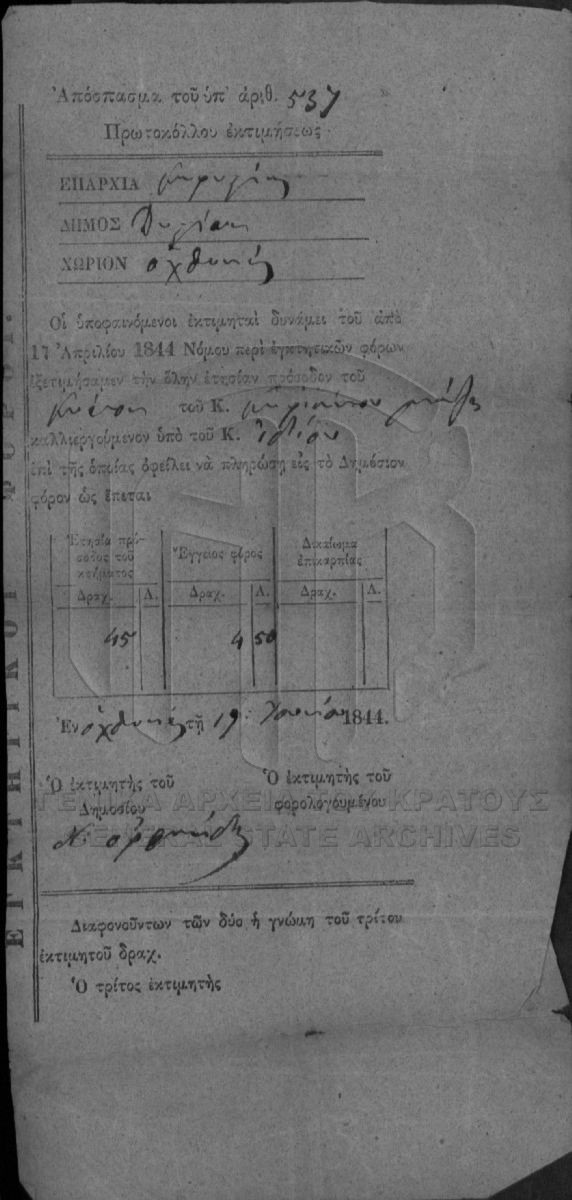 Ἀπόσπασμα τοῦ ὑπ' ἀριθ. 537
Πρωτοκόλλου ἐκτιμήσεως
ΕΠΑΡΧΙΑ
ΔΗΜΟΣ
ΧΩΡΙΟΝ ὀχθονιά
Οἱ ὑποφαινόμενοι ἐκτιμηταὶ δυνάμει τοῦ ἀπὸ
17 Ἀπριλίου 1844 Νόμου περὶ ἐγκτητικῶν φόρων
ἐξετιμήσαμεν τὴν ὅλην ἐτησίαν πρόσοδον τοῦ
τοῦ Κ.
καλλιεργούμενον ὑπὸ τοῦ Κ. ἰδίου
ἐπὶ τῆς ὁποίας ὀφείλει νὰ πληρώσῃ εἰς τὸ Δημόσιον
φόρον ὡς ἕπεται
Ἐτησία πρό-
σοδος τοῦ
κτήματος
Ἔγγειος φόρος
Δικαίωμα
ἐπικαρπίας
Δραχ. Λ. Δραχ. Λ. Δραχ. Λ.
45 4 50
Ἐν τῇ 19 Ἰουνίου 1844.
Ὁ ἐκτιμητὴς τοῦ
Δημοσίου
Ὁ ἐκτιμητὴς τοῦ
φορολογουμένου
Διαφονούντων τῶν δύο ἡ γνώμη τοῦ τρίτου
ἐκτιμητοῦ δραχ.
Ὁ τρίτος ἐκτιμητὴς
ΕΓΚΤΗΤΙΚΟΙ ΦΟΡΟΙ.
ΓΕΝΙΚΑ ΑΡΧΕΙΑ ΤΟΥ ΚΡΑΤΟΥΣ
GENERAL STATE ARCHIVES